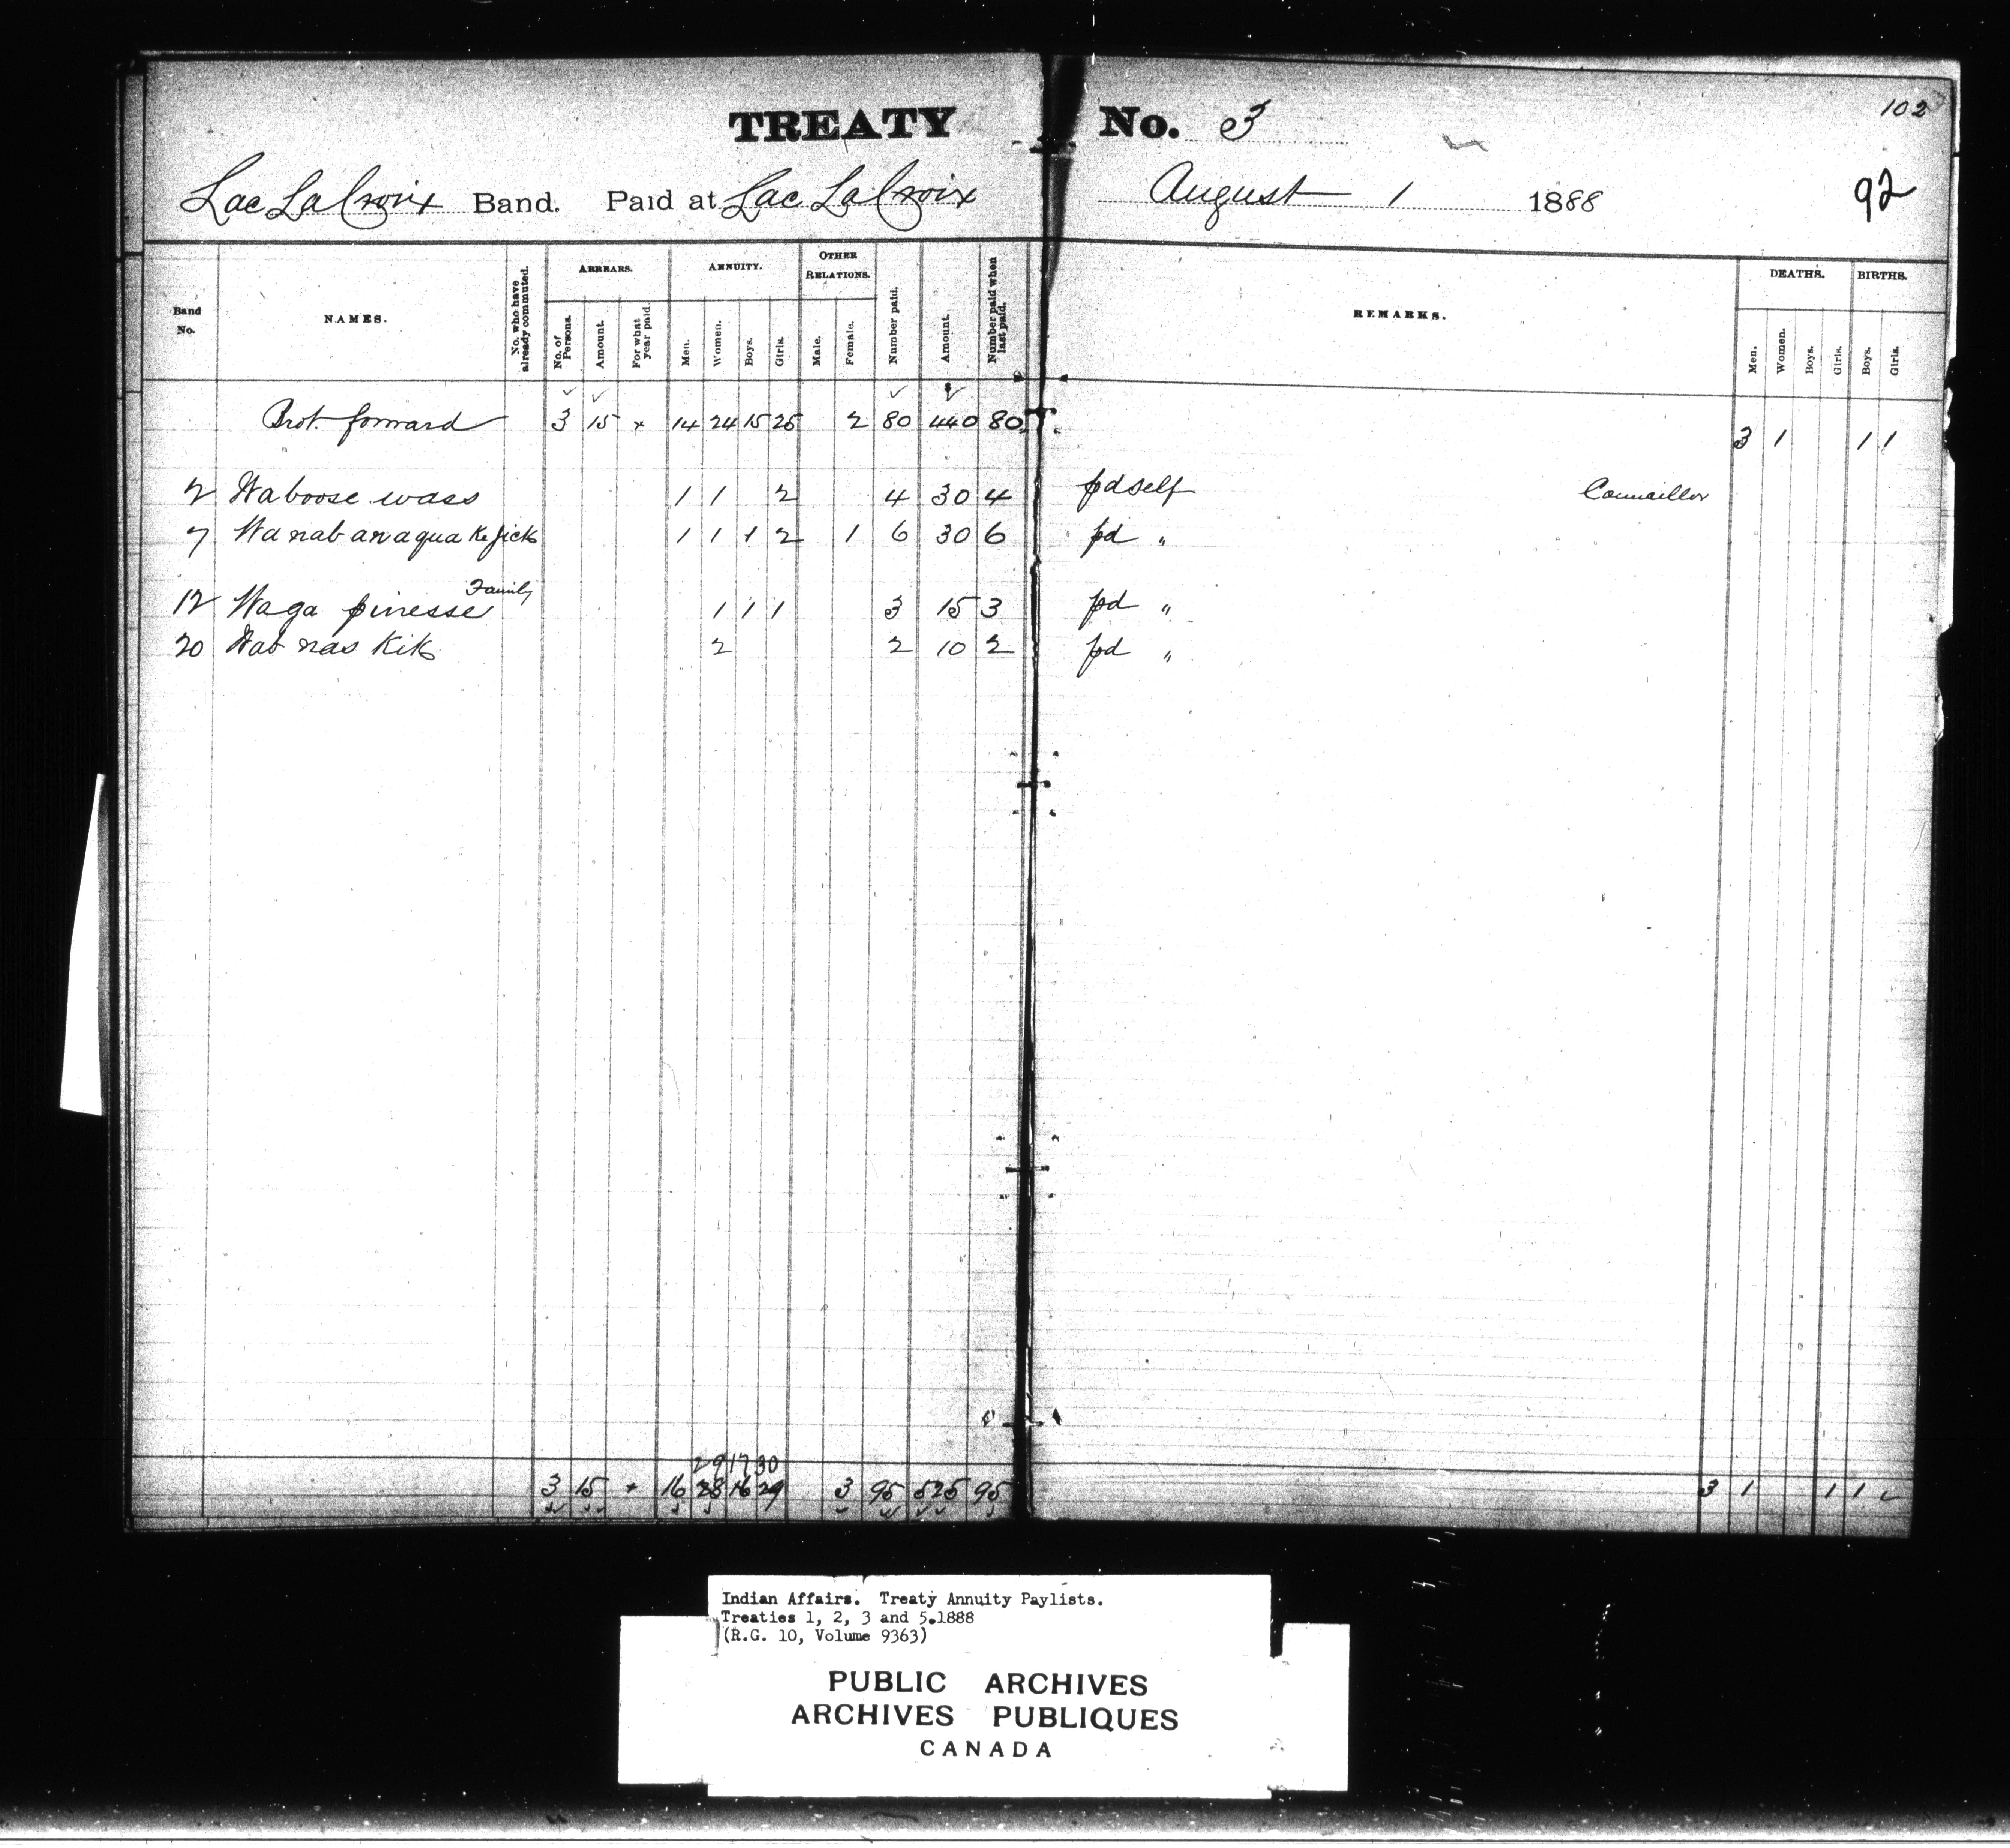 TREATY No. 3
102
Lac La Croix Band. Paid at Lac La Croix August 1 1888
92
Band No. NAMES. No. who have already commuted. ARREARS. ANNUITY. OTHER RELATIONS. Number paid. Amount. Number paid when last paid. REMARKS. DEATHS. BIRTHS.
No. of Persons. Amount. For what year paid. Men. Women. Boys. Girls. Male. Female. Men. Women. Boys. Girls. Boys. Girls.
Brot. forward 3 15 x 14 24 15 25 2 80 440 80 3 1 1 1
2 Waboose wass 1 1 2 4 30 4 pd self Councillor
7 Wanabanaqua Ke jick 1 1 1 2 1 6 30 6 pd "
Family
12 Waga pinesse 1 1 1 3 15 3 pd "
20 Wab nas Kik 2 2 10 2 pd "
29 17 30
3 15 + 16 28 16 29 3 95 525 95 3 1 1 1
Indian Affairs. Treaty Annuity Paylists.
Treaties 1, 2, 3 and 5.1888
(R.G. 10, Volume 9363)
PUBLIC ARCHIVES
ARCHIVES PUBLIQUES
CANADA